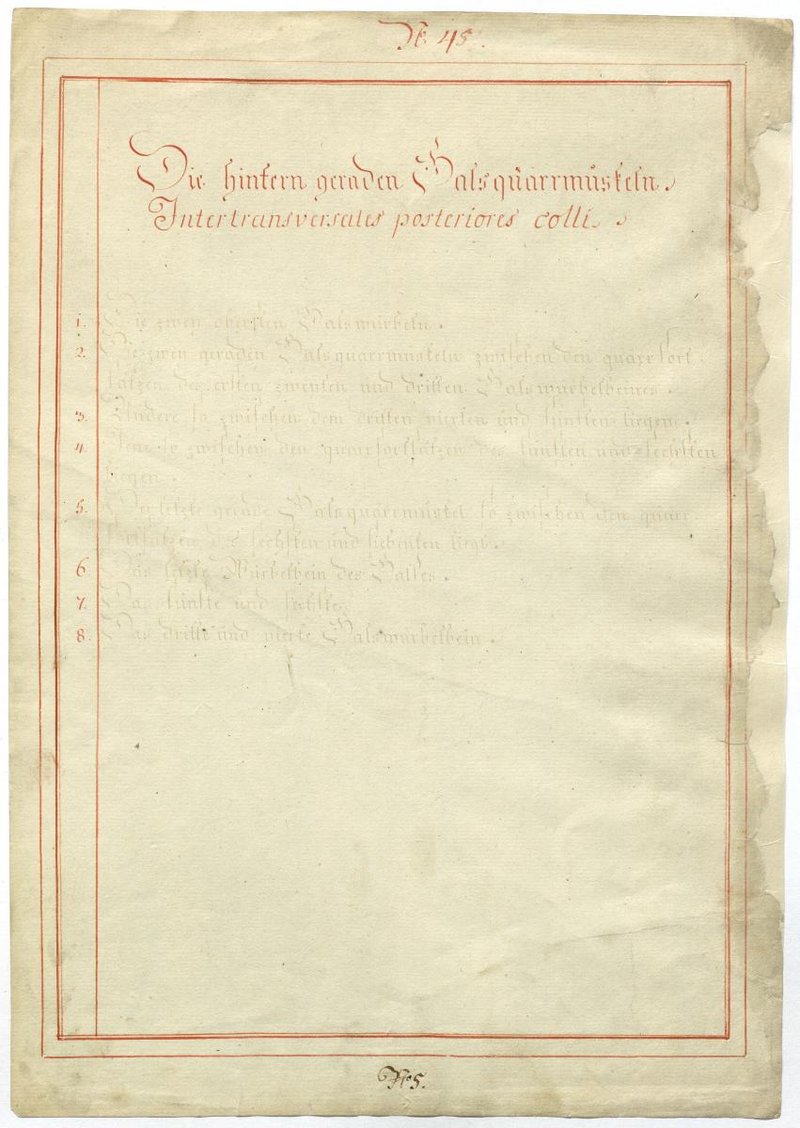 N. 45.
Die hintern geraden Halsquärrmuskeln.
Intertransversales posteriores colli.
1. Die zwey obersten Halswürbeln.
2. Die zwey geraden Halsquarrmuskeln zwischen den quarrfort
sätzen des ersten zweyten und dritten Halswürbelbeines.
3. Andere so zwischen dem dritten vierten und fünften liegen.
4. Jene so zwischen den quarfortsätzen des fünften und sechsten
liegen.
5. Der letzte gerade Halsquarrmuskel so zwischen den quarr
fortsätzen des sechsten und siebenten liegt.
6. Das letzte Würbelbein des Halses.
7. Das fünfte und sechste.
8. Das dritte und vierte Halswürbelbein.
No 5.